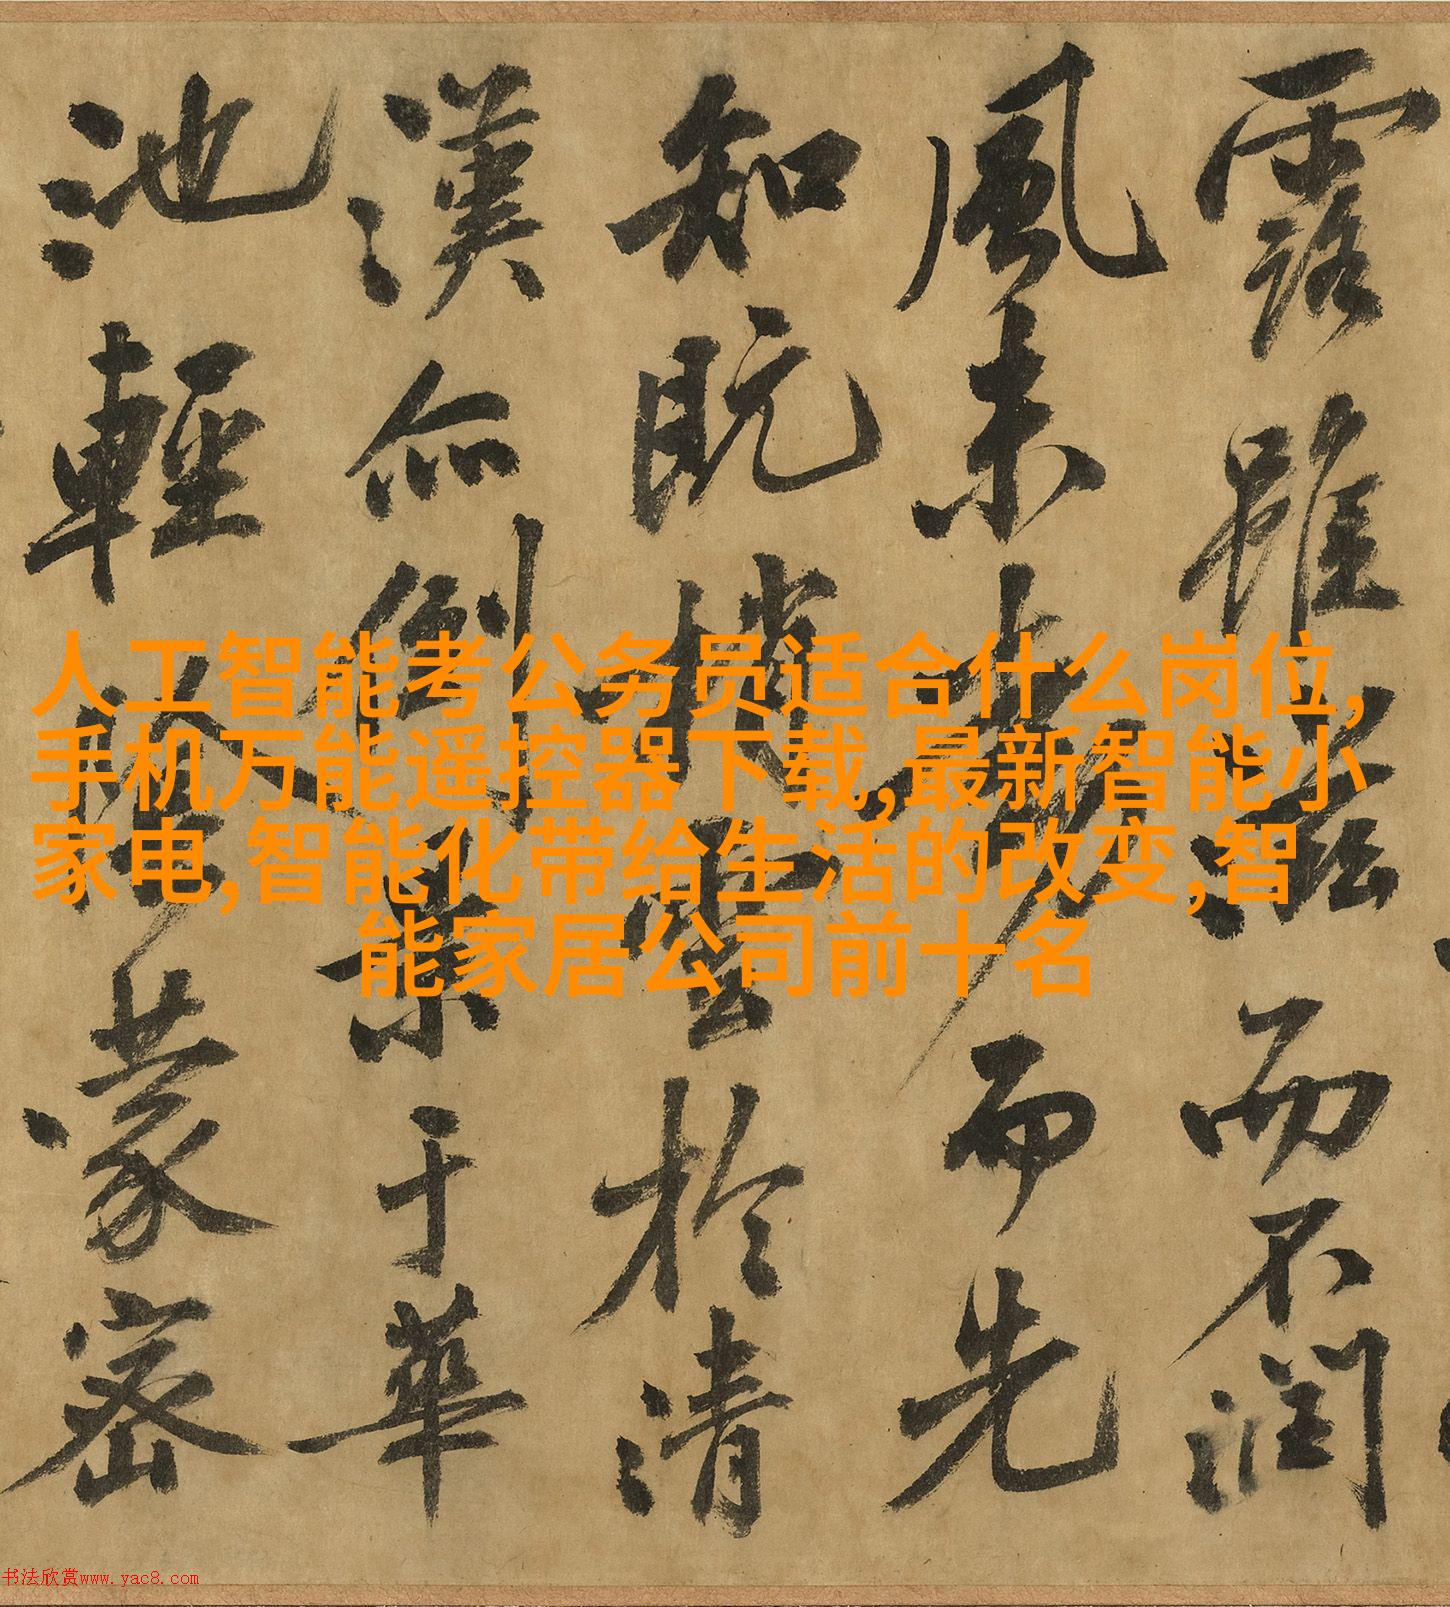 露雖滋而不潤
風未而先
知既梢雲於清
漢亦倒景于華
池輕蒙密
人工智能考公务员适合什么岗位,
手机万能遥控器下载,最新智能小
家电,智能化带给生活的改变,智
能家居公司前十名
书法欣赏www.yac8.com